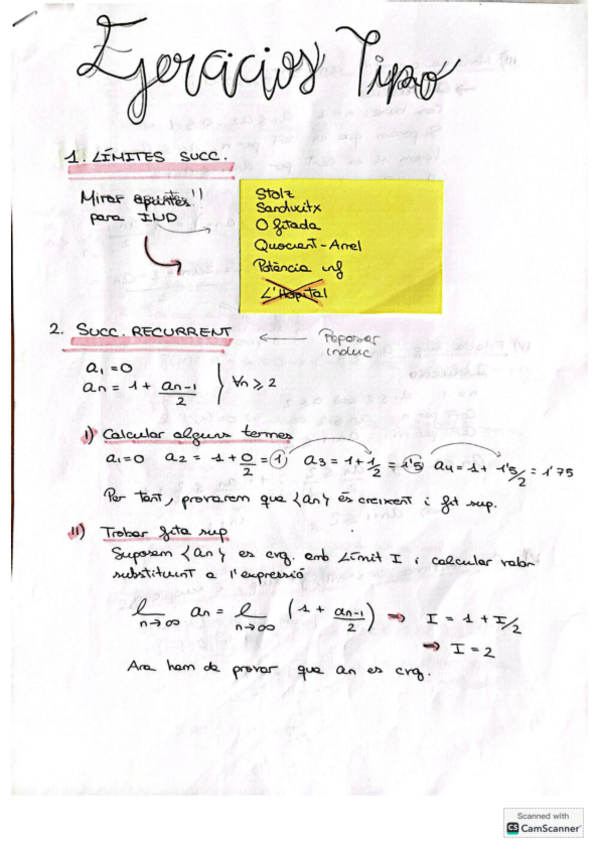 Ejercicios Tipo
1. LÍMITES SUCC.
Mirar apuntes!!
para IND
Stolz
Sandwitx
O fitada
Quocient-Arrel
Potència inf
L'Hopital
2. SUCC. RECURRENT
Repasar
induc
a₁ = 0
aₙ = 1 + aₙ₋₁/2 } ∀n ≥ 2
I) Calcular alguns termes
a₁=0 a₂ = 1 + 0/2 = 1 a₃ = 1 + 1/2 = 1'5 a₄ = 1 + 1'5/2 = 1'75
Per tant, provarem que {an} és creixent i fit sup.
II) Trobar fita sup
Suposem {an} es cvg. amb Límit I i calcular valor
substituint a l'expressió
lim n→∞ aₙ = lim n→∞ (1 + aₙ₋₁/2) → I = 1 + I/2
→ I = 2
Ara hem de provar que an es cvg.
Scanned with
CS CamScanner